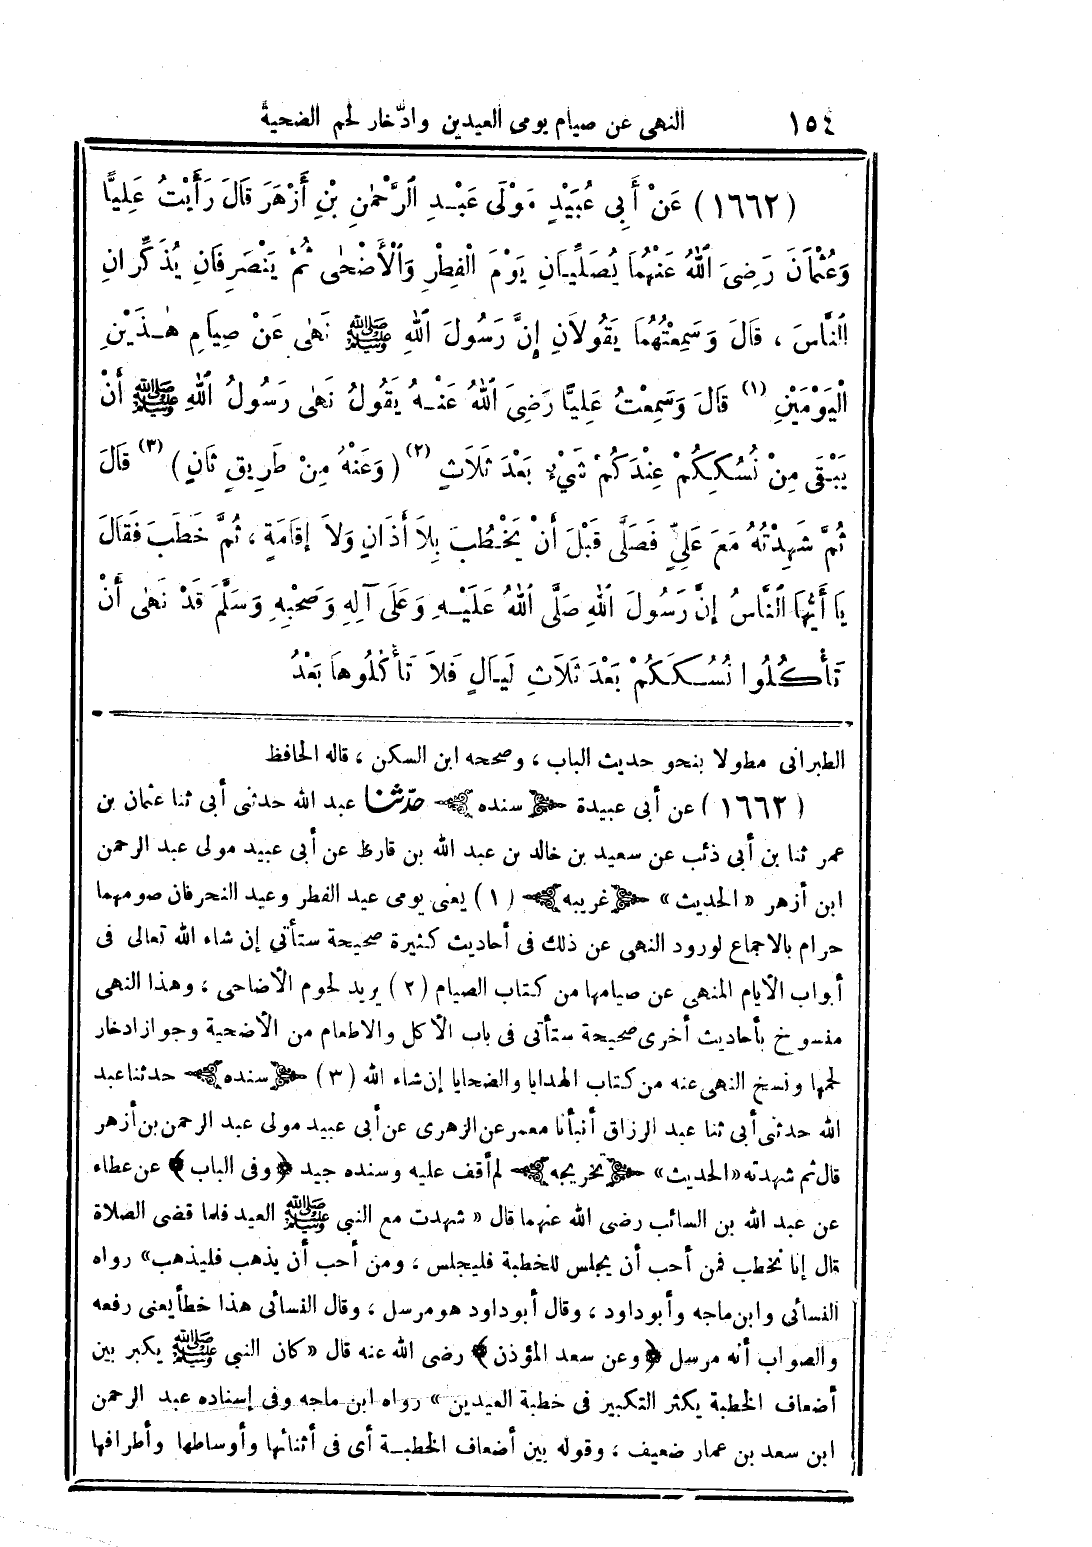 ١٥٤ النهى عن صيام يومى العيدين وادّخار لحم الضحية
(١٦٦٢) عَنْ أَبِي عُبَيْدٍ مَوْلَى عَبْدِ الرَّحْمٰنِ بْنِ أَزْهَرَ قَالَ رَأَيْتُ عَلِيًّا
وَعُثْمَانَ رَضِىَ اللهُ عَنْهُمَا يُصَلِّيَانِ يَوْمَ الْفِطْرِ وَالْأَضْحٰى ثُمَّ يَنْصَرِفَانِ يُذَكِّرَانِ
النَّاسَ ، قَالَ وَسَمِعْتُهُمَا يَقُولَانِ إِنَّ رَسُولَ اللهِ ﷺ نَهٰى عَنْ صِيَامِ هٰذَيْنِ
الْيَوْمَيْنِ (١) قَالَ وَسَمِعْتُ عَلِيًّا رَضِىَ اللهُ عَنْهُ يَقُولُ نَهٰى رَسُولُ اللهِ ﷺ أَنْ
يَبْقَى مِنْ نُسُكِكُمْ عِنْدَكُمْ شَيْءٌ بَعْدَ ثَلَاثٍ (٢) (وَعَنْهُ مِنْ طَرِيقٍ ثَانٍ) (٣) قَالَ
ثُمَّ شَهِدْتُهُ مَعَ عَلِيٍّ فَصَلَّى قَبْلَ أَنْ يَخْطُبَ بِلَا أَذَانٍ وَلَا إِقَامَةٍ ، ثُمَّ خَطَبَ فَقَالَ
يَا أَيُّهَا النَّاسُ إِنَّ رَسُولَ اللهِ صَلَّى اللهُ عَلَيْهِ وَعَلَى آلِهِ وَصَحْبِهِ وَسَلَّمَ قَدْ نَهٰى أَنْ
تَأْكُلُوا نُسُكَكُمْ بَعْدَ ثَلَاثِ لَيَالٍ فَلَا تَأْكُلُوهَا بَعْدُ
الطبرانى مطولا بنحو حديث الباب ، وصححه ابن السكن ، قاله الحافظ
(١٦٦٢) عن أبى عبيدة ﴿سنده﴾ حدّثنا عبد الله حدثنى أبى ثنا عثمان بن
عمر ثنا بن أبى ذئب عن سعيد بن خالد بن عبد الله بن قارظ عن أبى عبيد مولى عبد الرحمن
ابن أزهر «الحديث» ﴿غريبه﴾ (١) يعنى يومى عيد الفطر وعيد النحر فان صومهما
حرام بالاجماع لورود النهى عن ذلك فى أحاديث كثيرة صحيحة ستأتي إن شاء الله تعالى فى
أبواب الأيام المنهى عن صيامها من كتاب الصيام (٢) يريد لحوم الأضاحى ، وهذا النهى
منسوخ بأحاديث أخرى صحيحة ستأتى فى باب الأكل والاطعام من الأضحية وجواز ادخار
لحمها ونسخ النهى عنه من كتاب الهدايا والضحايا إن شاء الله (٣) ﴿سنده﴾ حدثنا عبد
الله حدثنى أبى ثنا عبد الرزاق أنبأنا معمر عن الزهرى عن أبى عبيد مولى عبد الرحمن بن أزهر
قال ثم شهدته «الحديث» ﴿تخريجه﴾ لم أقف عليه وسنده جيد ﴿وفى الباب﴾ عن عطاء
عن عبد الله بن السائب رضى الله عنهما قال « شهدت مع النبي ﷺ العيد فلما قضى الصلاة
قال إنا نخطب فمن أحب أن يجلس للخطبة فليجلس ، ومن أحب أن يذهب فليذهب» رواه
النسائى وابن ماجه وأبو داود ، وقال أبو داود هو مرسل ، وقال النسائى هذا خطأ يعنى رفعه
والصواب أنه مرسل ﴿وعن سعد المؤذن﴾ رضى الله عنه قال « كان النبي ﷺ يكبر بين
أضعاف الخطبة يكثر التكبير فى خطبة العيدين » رواه ابن ماجه وفى إسناده عبد الرحمن
ابن سعد بن عمار ضعيف ، وقوله بين أضعاف الخطبة أى فى أثنائها وأوساطها وأطرافها